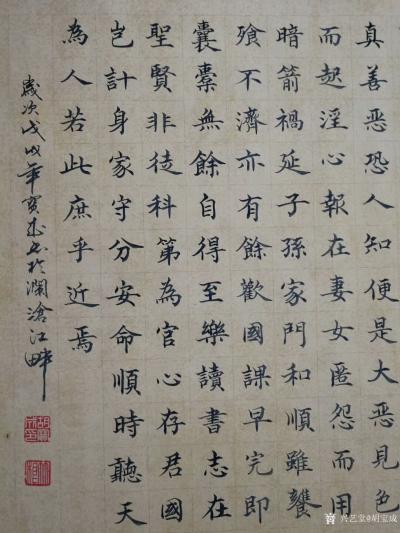 真善恶恐人知便是大恶見色
而起淫心報在妻女匿怨而用
暗箭禍延子孫家門和順雖饔
飧不濟亦有餘歡國課早完即
囊橐無餘自得至樂讀書志在
聖賢非徒科第為官心存君國
岂計身家守分安命順時聽天
為人若此庶乎近焉
歲次戊戌年寶成书於瀾滄江畔
兴艺堂@胡宝成